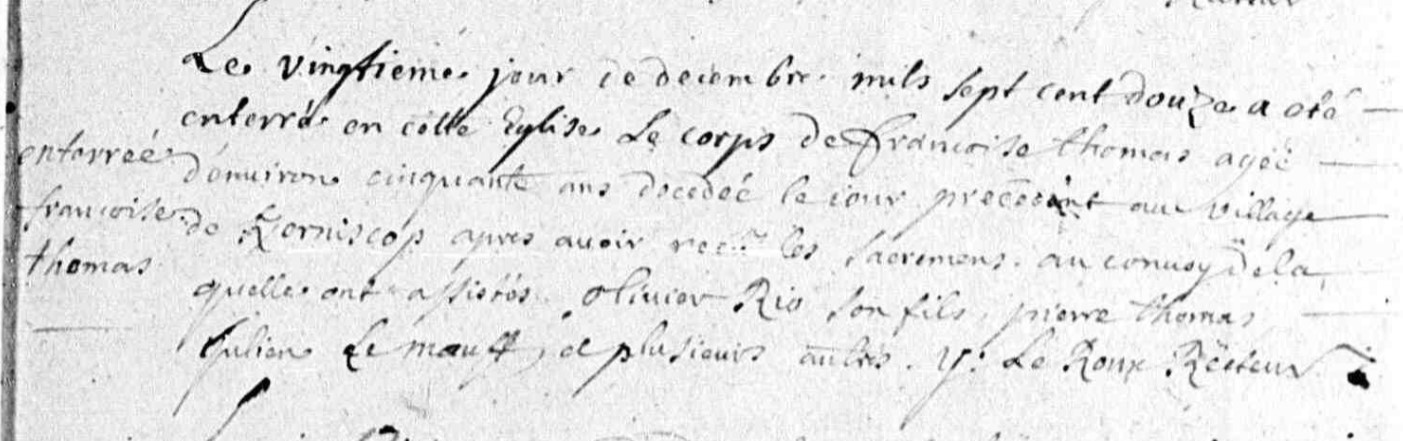 Le vingtieme jour de decembre mils sept cent douze a eté
enterré en cette Eglise Le corps de francoise thomas ageé
d'enuiron cinquante ans decedeé le iour precedent au village
de Kerniscop apres auoir receu les sacremens. au conuoy dela
quelle ont assistés olivier Rio son fils, pierre thomas
Julien Le mauff, et plusieurs autres. y. Le Roux Recteur
enterreé
francoise
thomas